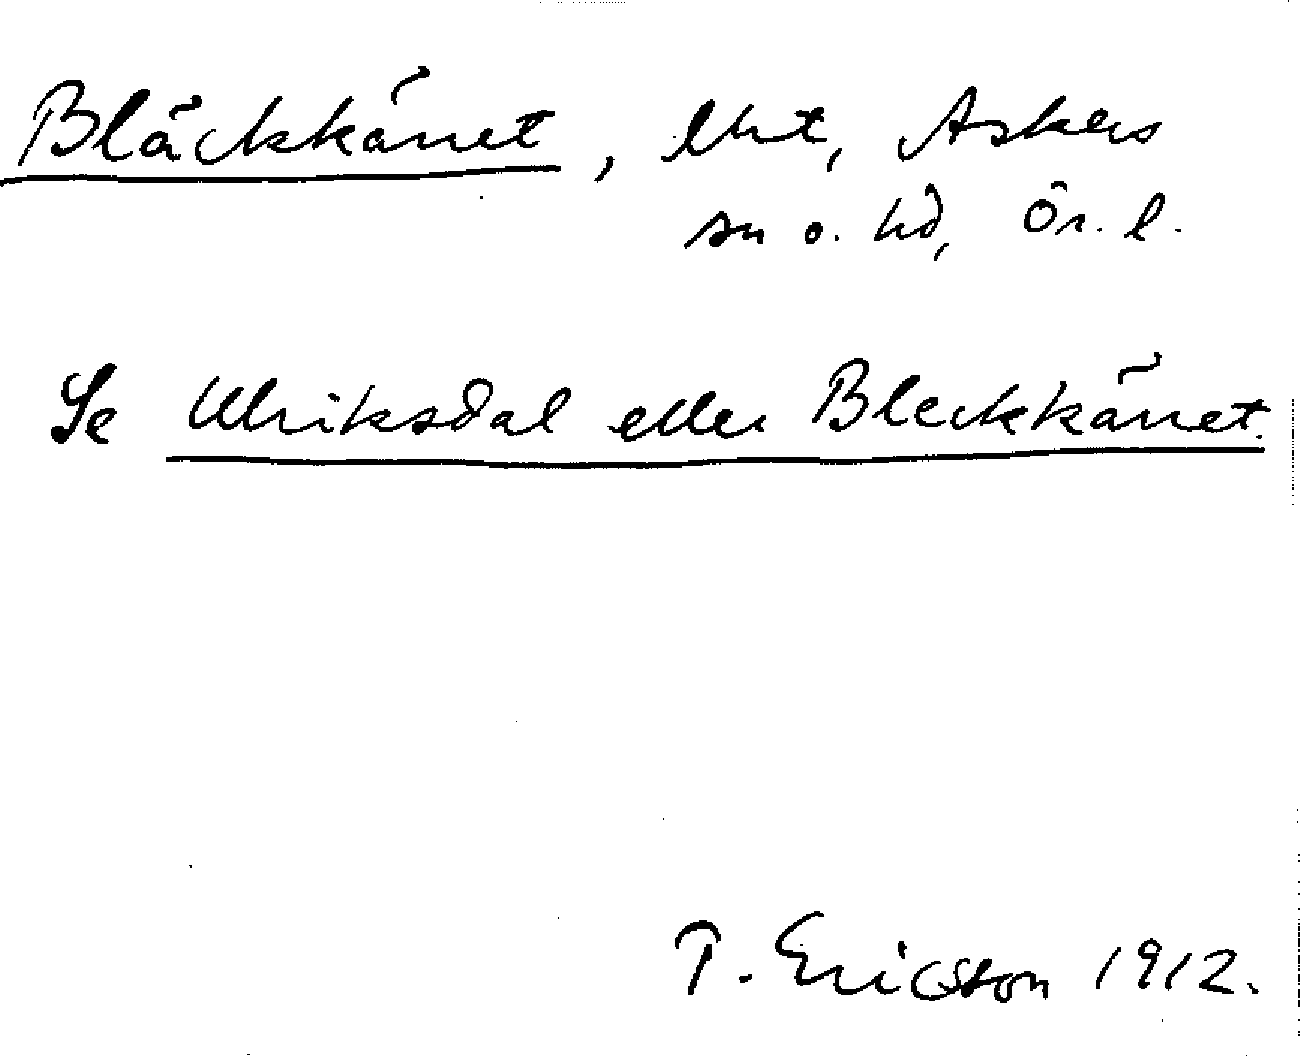 Bläckkärret, lht, Askers
sn o. hd, Ör. l.
Se Ulriksdal eller Bleckkärret.
T. Ericsson 1912.